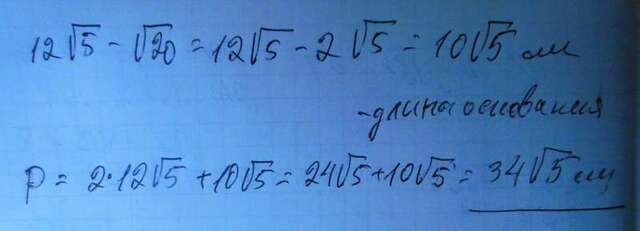 12√5 - √20 = 12√5 - 2√5 = 10√5 см
- длина основания
P = 2·12√5 + 10√5 = 24√5 + 10√5 = 34√5 см